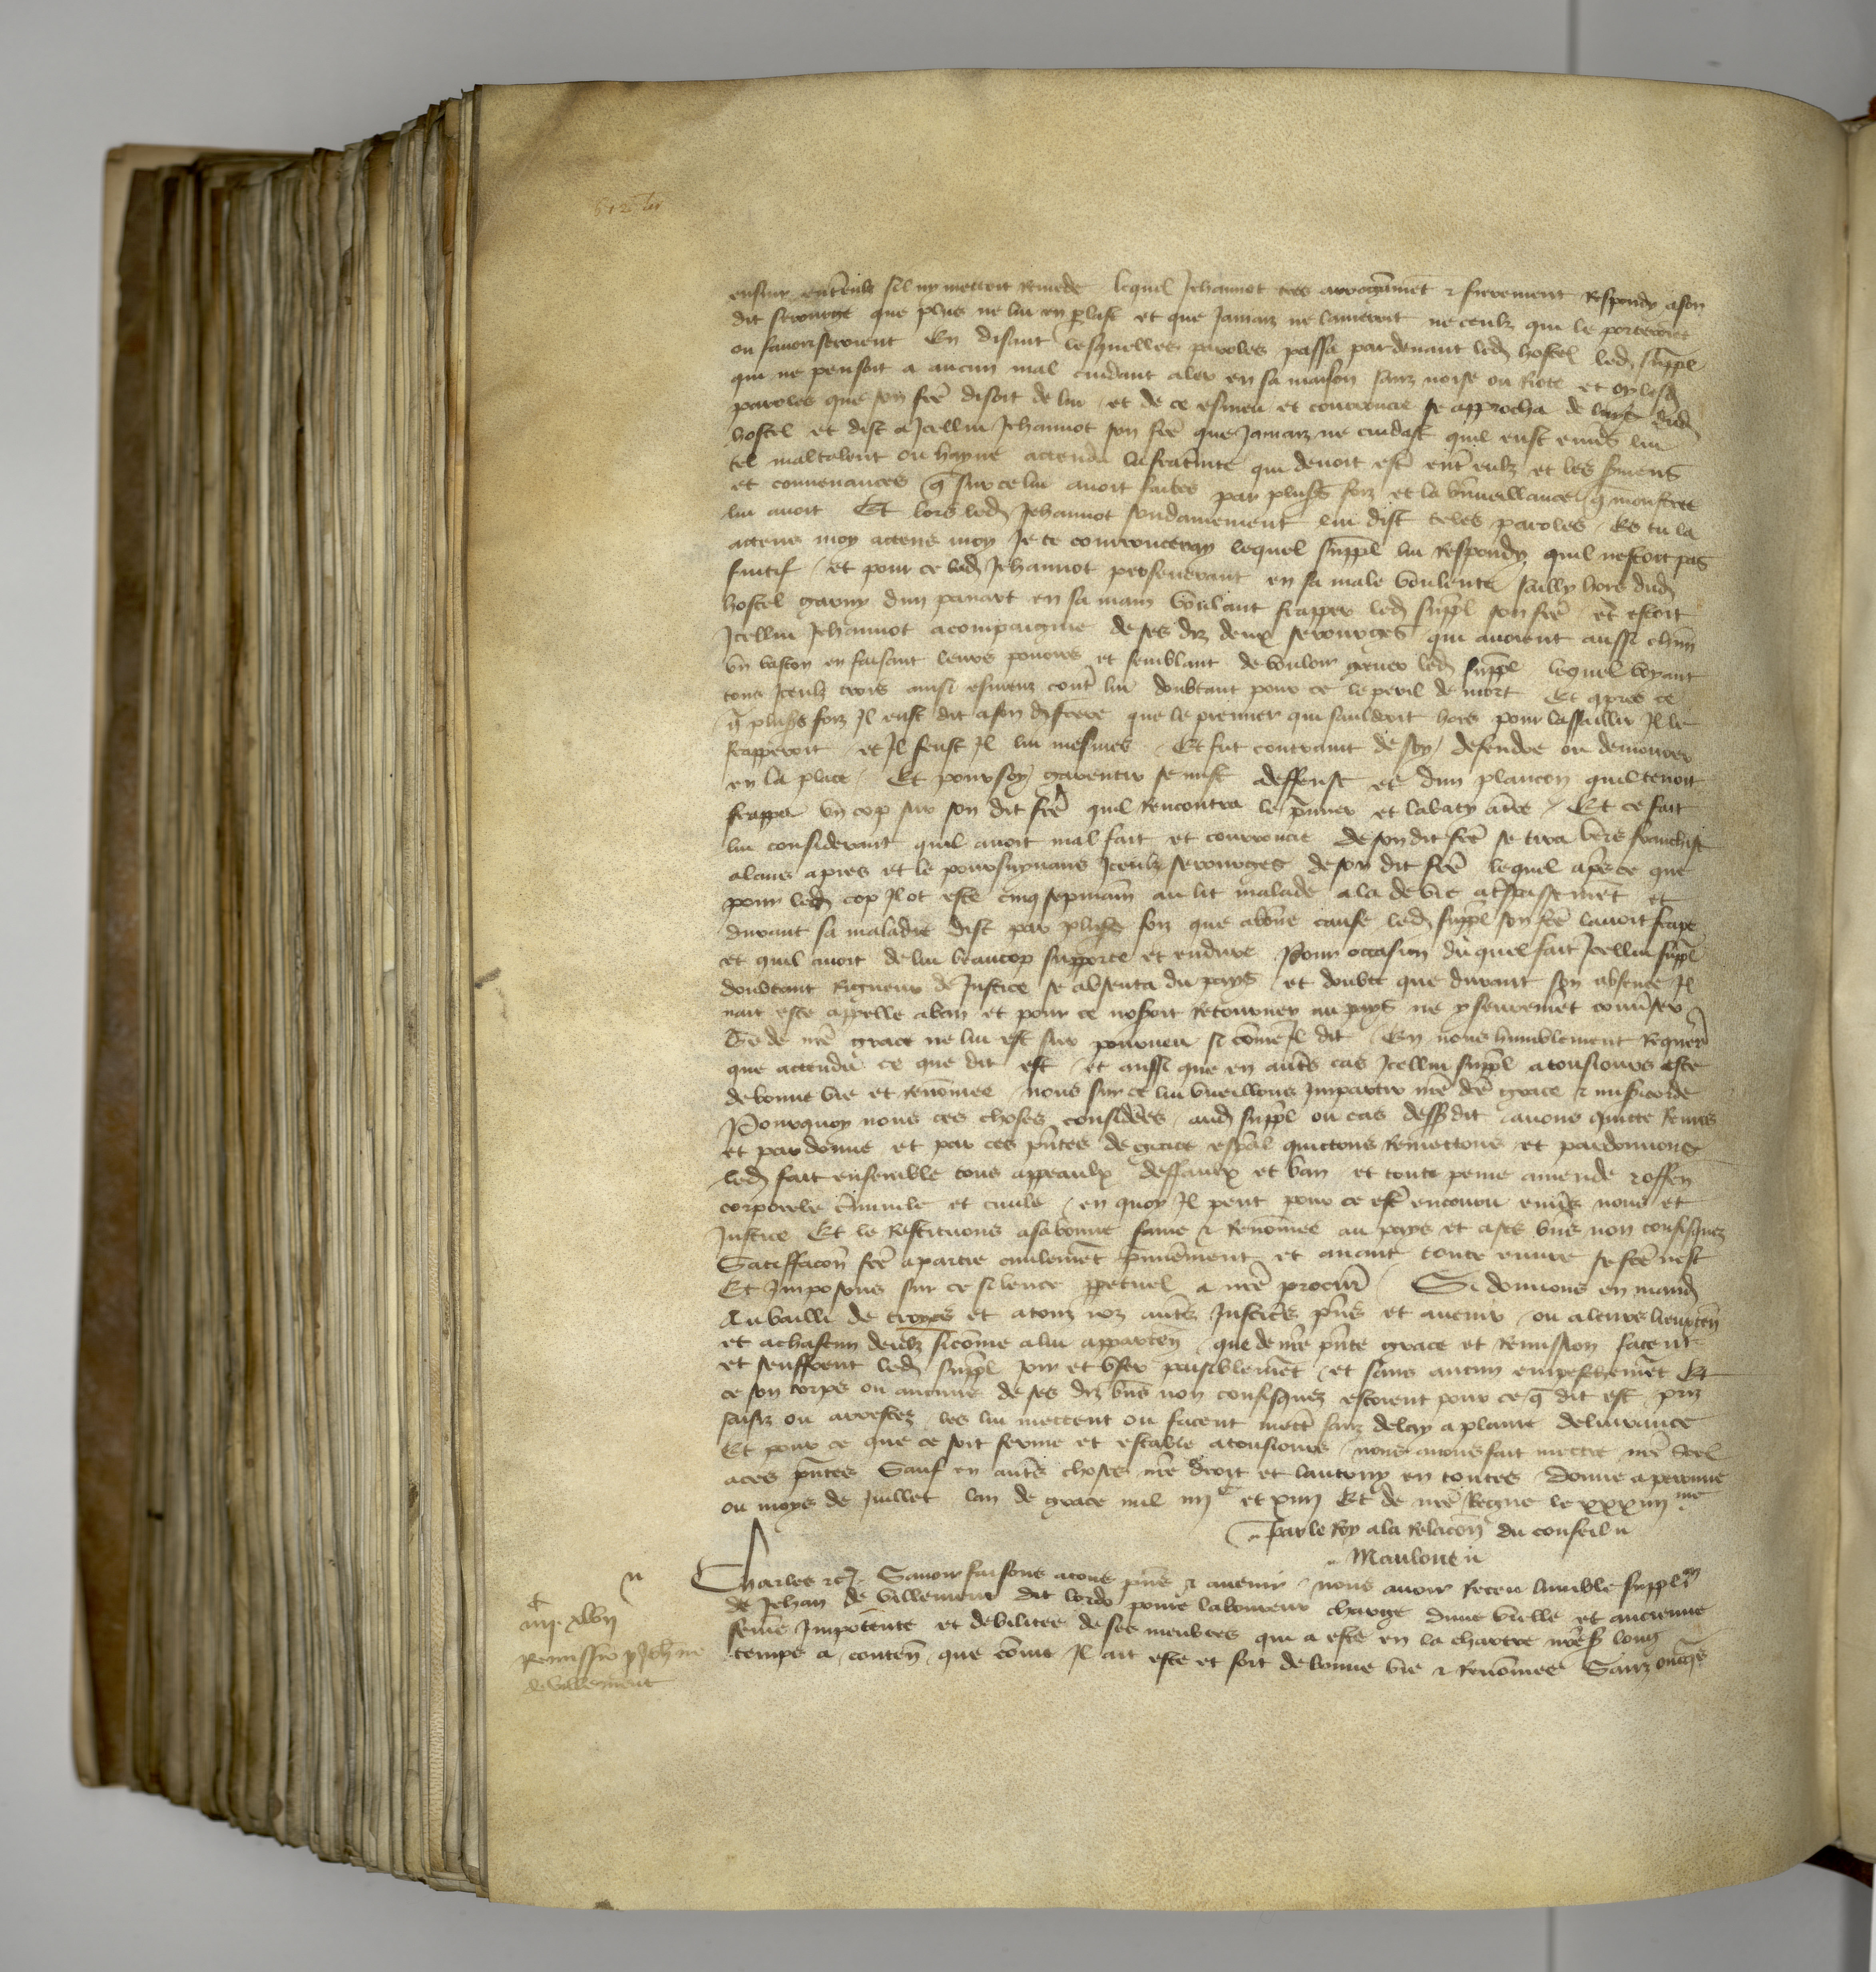 ensuir entreulx sil ny mettoit remede lequel Jehannot tres arrogāmēt ⁊ fierement respondy a son
dit serourge que plus ne lui en plast et que jamaiz ne lameroit ne ceulx qui le porteroiēt
ou favoriseroient En disant lesquelles paroles passa par devant led hostel led suppl
qui ne pensoit a aucun mal cuidant aler en sa maison sanz noise ou riote et oy lesd
paroles que son frē disoit de lui et de ce esmeu et courroucie se approcha de luys dud
hostel et dist a icellui Jehannot son frē que jamaiz ne cuidast quil eust envs lui
tel maltalent ou hayne actendu la frat̄nite qui devoit estr̄ ent̄ eulx et les s̄mens
et convenances q̄ sur ce lui avoit faites par pluss foiz et la bn̄vueillance q̄ monstree
lui avoit Et lors led Jehannot soudainement lui dist teles paroles Es tu la
actens moy actens moy Je te courrouceray lequel suppl lui respondy quil nestoit pas
fuitif et pour ce led Jehannot perseverant en sa male voulente sailly hors dud
hostel garny dun panart en sa main voulant frapper led suppl son frē et estoit
Icellui Jehannot acompaigne de ses diz deux serourges qui avoient aussi chūn
un baston en faisant leurs povoirs et semblant de vouloir grever led suppl lequel voyant
tous iceulx trois ainsi esmeuz cont̄ lui doubtant pour ce le peril de mort Et apres ce
q̄ pluss foiz Il eust dit a son d frere que le premier qui sauldroit hors pour lassaillir Il le
frapperoit et Il feust Il lui mesmes Et fut contraint de soy defendre ou demourer
en la place Et pour soy garentir se mist a deffense et dun plancon quil tenoit
frappa un cop sur son dit frē quil rencontra le p̄mier et labaty a tr̄e Et ce fait
lui considerant quil avoit mal fait et courroucie de son dit frē se tira vers franchise
alans apres et le poursuyvans Iceulx serourges de son dit frē lequel ap̄s ce que
pour led cop Il ot este cinq sepmain̄ au lit malade ala de vie a t̄spassemēt et
durant sa maladie dist par pluss foiz que a bōne cause led suppl son frē lavoit frape
et quil avoit de lui beaucop supporte et endure Pour occasion du quel fait Icellui suppl
doubtant rigueur de Justice se absenta du pays et doubte que durant son absence Il
nait este appelle a ban et pour ce nosoit retourner au pays ne y seuremēt conv̄ser
Se de nr̄e grace ne lui est sur pourveu si cōme Il dit En nous humblement requer̄
que actendu ce que dit est et aussi que en autr̄s cas Icellui suppl a tousiours este
de bonne vie et renōmee nous sur ce lui vueillons Impartir nr̄e dc̄e grace ⁊ mis̄icorde
Pourquoy nous ces choses considēes aud suppl ou cas dessusdit avons quicte remis
et pardonne et par ces pn̄tes de grace esp̄al quictons remettons et pardonnons
led fait ensemble tous appeaulx deffaulx et ban et toute peine amende ⁊ offen
corporele c̄minele et civile en quoy Il peut pour ce estr̄ encouru env̄s nous et
Justice Et le restituons a sa bonne fame ⁊ renōmee au pays et a ses biēs non confisquez
Satiffacōn fcē a partie civilemēt p̄mierement et avant toute euvre se fcē nest
Et Imposons sur ce silence ppetuel a nr̄e procur̄ Si donnons en mand
Au bailli de troyes et a touz noz autr̄s Justiciēs pn̄s et avenir ou a leurs lieuxten̄
et a chascun deulx si cōme a lui apparten̄ que de nr̄e pn̄te grace et remission facent
et seuffrent led suppl joir et user paisiblemēt et sans aucun empeschemēt Et
ce son corps ou aucuns de ses diz biēs non confisquez estoient pour ce q̄ dit est priz
saisiz ou arrestez les lui mettent ou facent mett̄ sanz delay a plaine delivrance
Et pour ce que ce soit ferme et estable a tousiours nous avons fait mettre nr̄e seel
a ces pn̄tes Sauf en autr̄s choses nr̄e droit et lautruy en toutes Donne a peronne
ou moys de Juillet lan de grace mil iiijc et xiiij Et de nr̄e Regne le xxxiiijme
Par le Roy a la relacōn du conseil
Mauloue
Charles ⁊c̄ Savoir faisons a tous pn̄s ⁊ avenir nous avoir receu lumble supplicōn
de Jehan de villement dit lordo povre laboureur charge dune vieille et ancienne
fem̄e Impotente et debilitee de ses membres qui a este en la chartre nr̄e s long
temps a conten̄ que cōme Il ait este et soit de bonne vie ⁊ renōmee Sanz onq̄s
iiijc xlvij
Remissio p Joh̄ne
de villement